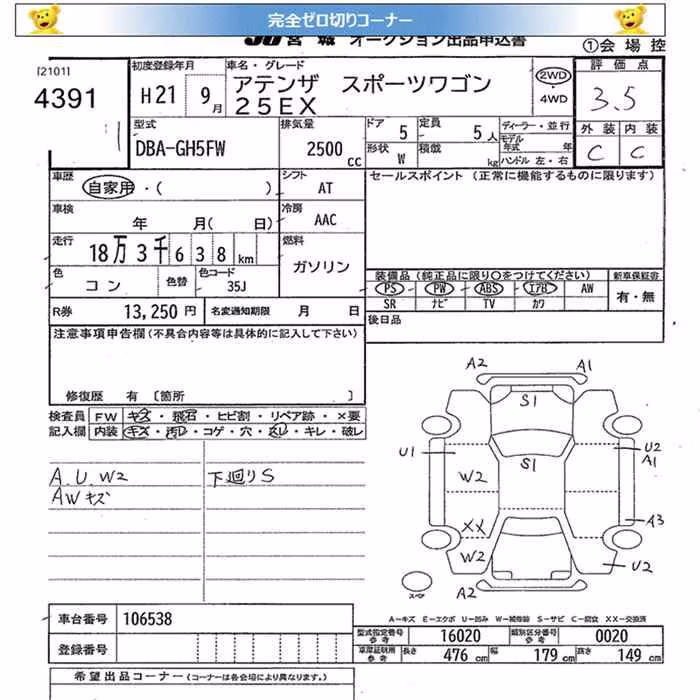 完全ゼロ切りコーナー
JU 宮城 オークション出品申込書 ①会場控
[2101]
4391
初度登録年月
H21 9月
車名・グレード
アテンザ スポーツワゴン
25EX
2WD
・4WD
評価点
3.5
外装 内装
C C
型式
DBA-GH5FW
排気量
2500 cc
ドア 5
定員 5人
形状 W
積載 kg
ディーラー・並行
モデル年式 年
ハンドル 左・右
車歴
自家用・( )
シフト
AT
セールスポイント (正常に機能するものに限ります)
車検
年 月( 日)
冷房
AAC
走行
18万3千638km
燃料
ガソリン
色
コン
色替
色コード
35J
装備品 (純正品に限り○をつけてください) 新車保証書
PS PW ABS エアB AW
SR ナビ TV カワ
有・無
R券 13,250円
名変通知期限 月 日
後日品
注意事項申告欄 (不具合内容等は具体的に記入して下さい)
修復歴 有〔箇所 〕
検査員 FW キズ・飛石・ヒビ割・リペア跡・×要
記入欄 内装 キズ・汚レ・コゲ・穴・スレ・キレ・破レ
A.U.W2
AWキズ
下廻りS
A2 A1
S1
U1
S1
U2
A1
W2
XX
A3
W2
U2
A2
スペア
A-キズ E-エクボ U-凹み W-補修跡 S-サビ C-腐食 XX-交換済
車台番号 106538
登録番号
型式指定番号 参考 16020
類別区分番号 参考 0020
車庫証明用 参考 長さ 476cm 幅 179cm 高さ 149cm
希望出品コーナー (コーナーは各会場により異なります。)